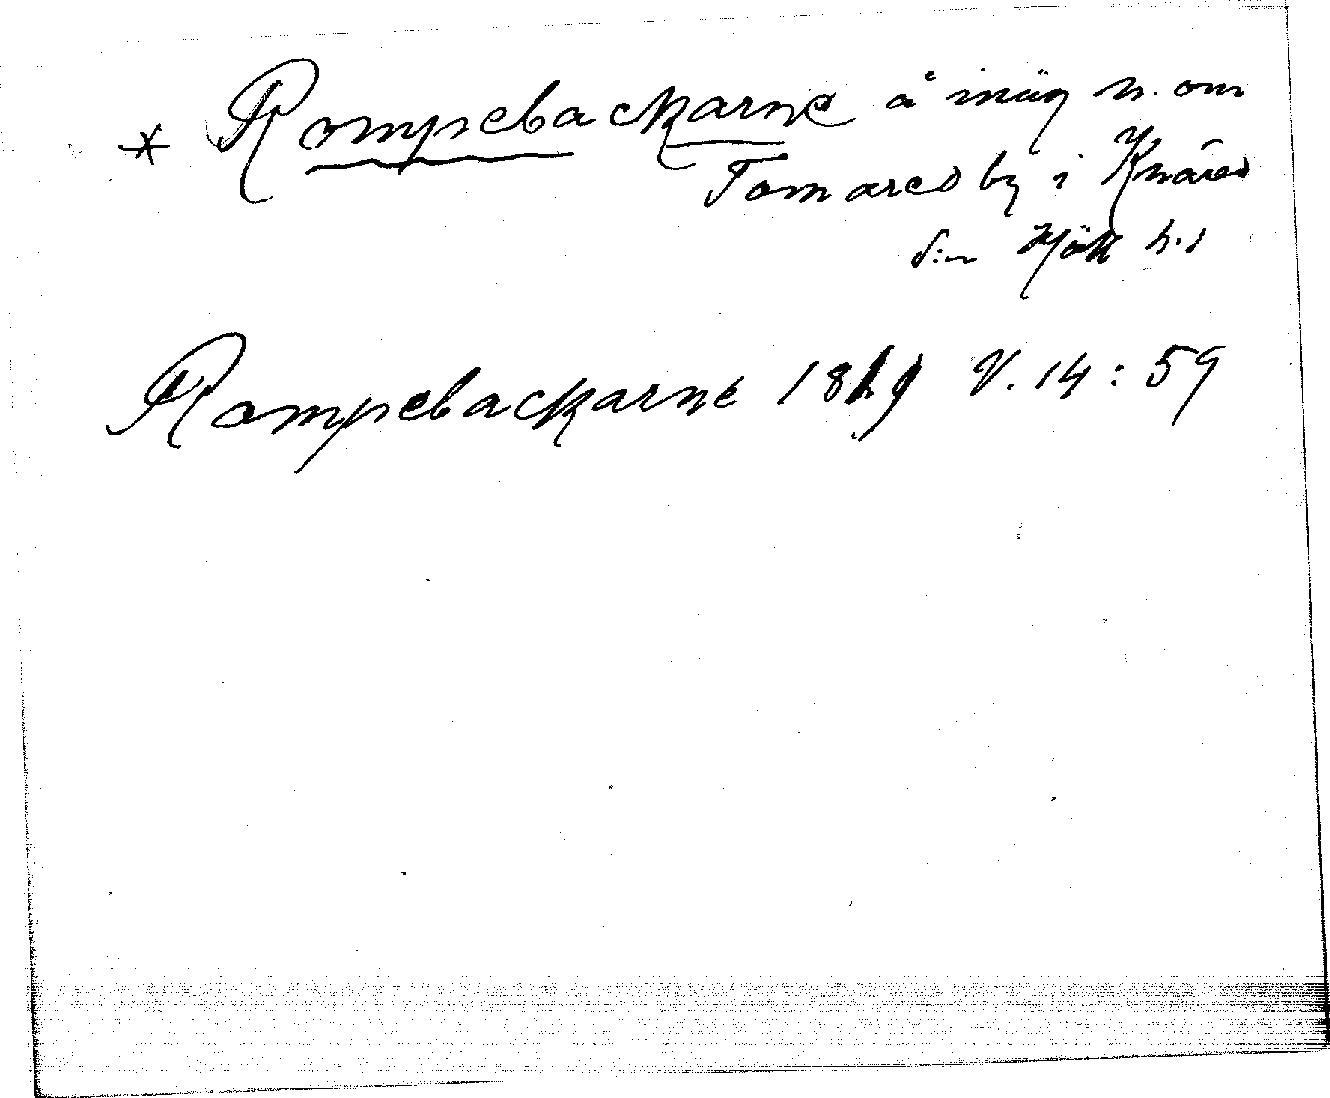 * Rompebackarne å inäg n. om
Tomared by i Knäred
s:n Hök h.d
Rompebackarne V. 14 : 59